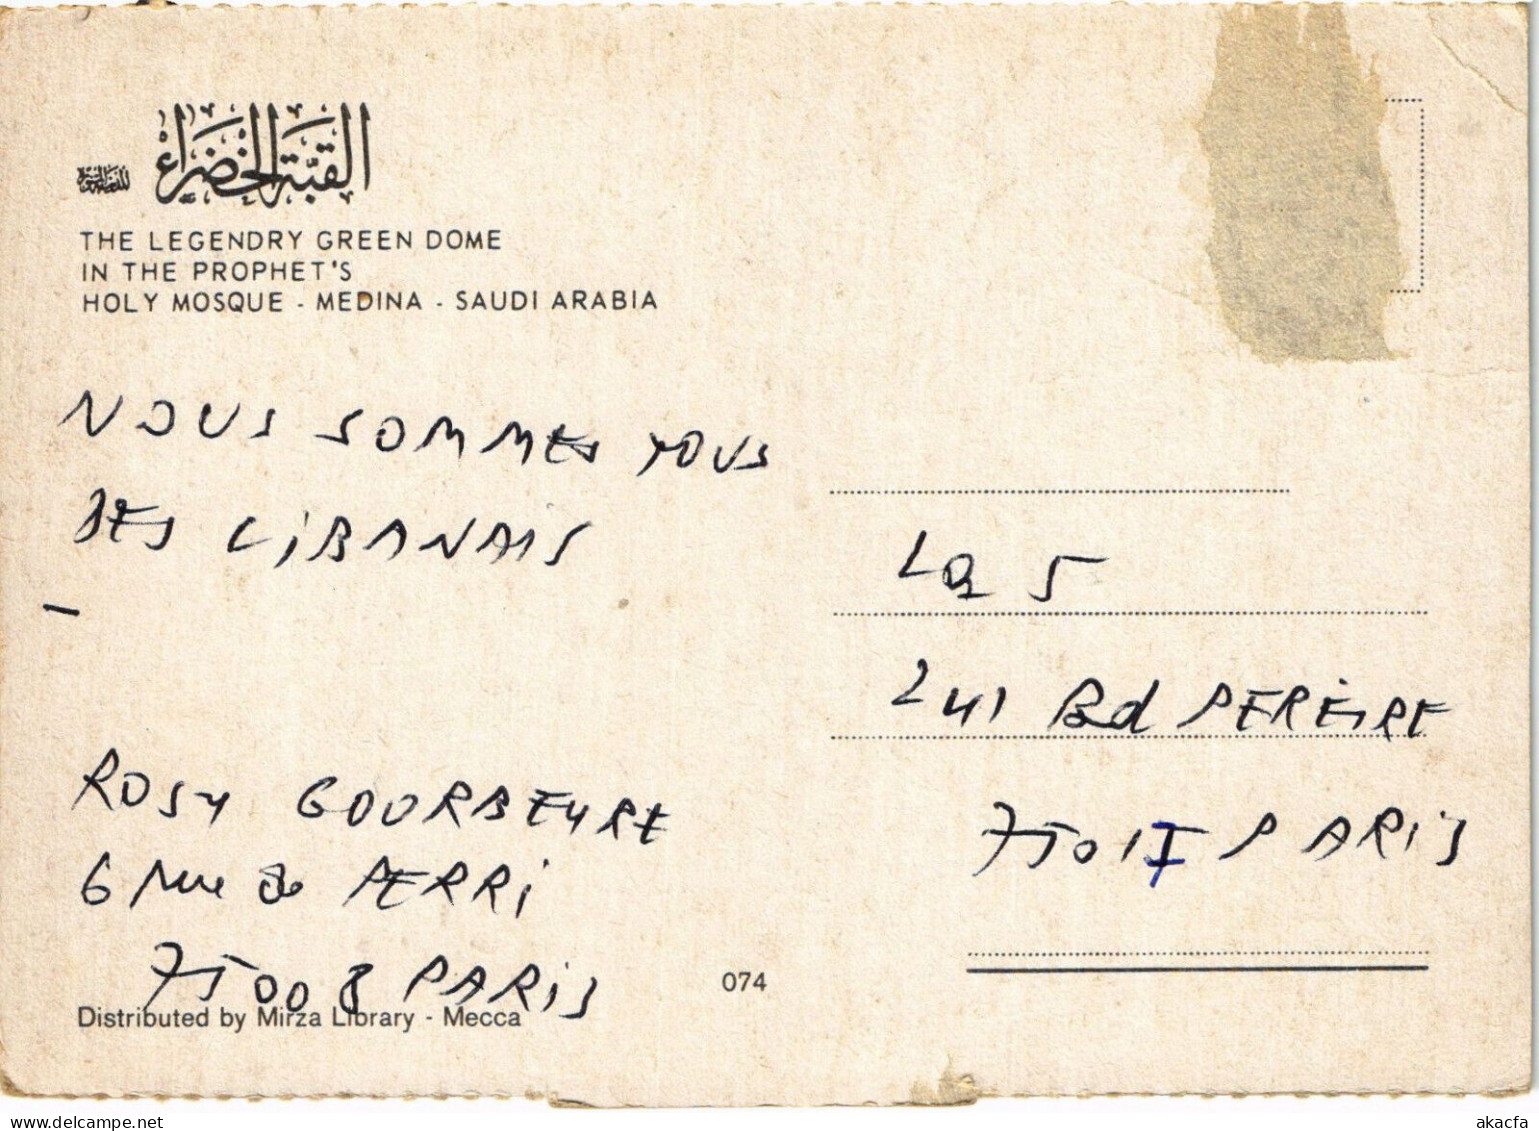 القبّة الخضراء
THE LEGENDRY GREEN DOME
IN THE PROPHET'S
HOLY MOSQUE - MEDINA - SAUDI ARABIA
NOUS SOMMES TOUS
DES LIBANAIS
-
ROSY GOURBEYRE
6 Rue de PERRI
75008 PARIS
Distributed by Mirza Library - Mecca
074
La 5
241 Bd PEREIRE
75017 PARIS
hippostcard.com
akacfa